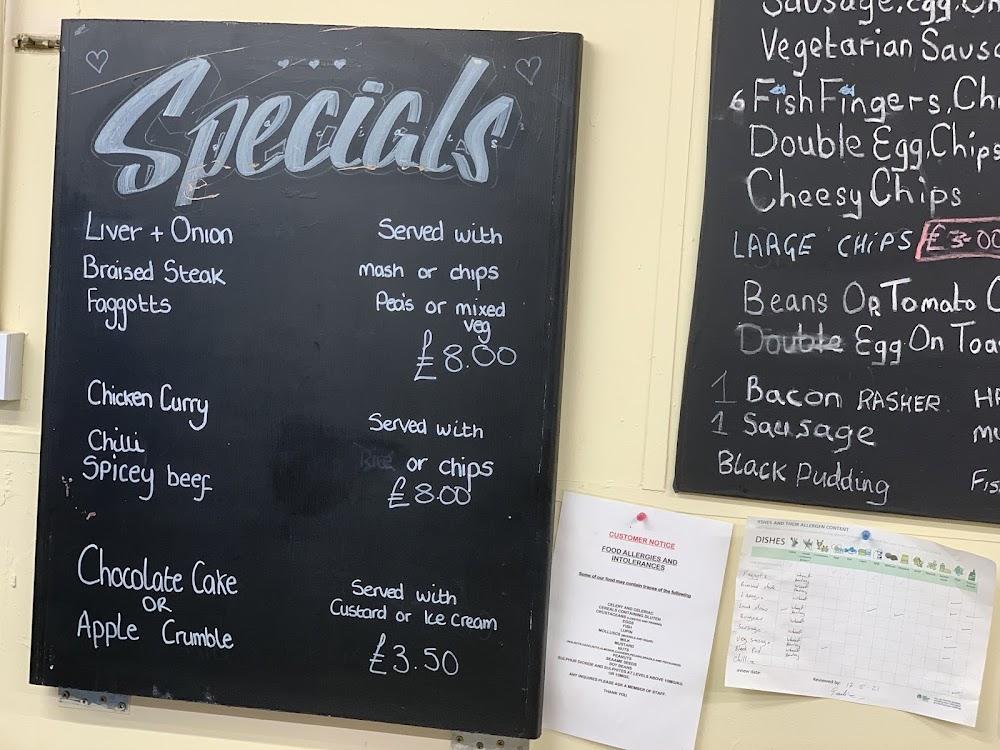 Specials
Liver + Onion
Braised Steak
Faggotts
Served with
mash or chips
Pea's or mixed
veg
£8.00
Chicken Curry
Chilli
Spicey beef
Served with
Rice or chips
£8.00
Chocolate Cake
OR
Apple Crumble
Served with
Custard or Ice Cream
£3.50
Sausage, Egg,
Vegetarian
6 Fish Fingers,
Double Egg, Chips
Cheesy Chips
LARGE CHIPS £3.00
Beans OR Tomato
Double Egg On
1 Bacon RASHER
1 Sausage
Black Pudding
CUSTOMER NOTICE
FOOD ALLERGIES AND
INTOLERANCES
Some of our food may contain traces of the following
CELERY AND CELERIAC
CEREALS CONTAINING GLUTEN
EGGS
FISH
LUPIN
MILK
MUSTARD
NUTS
PEANUTS
SESAME SEEDS
SOY BEANS
SULPHUR DIOXIDE AND SULPHITES AT LEVELS ABOVE 10MG/KG
OR 10MG/L
ANY INQUIRES PLEASE ASK A MEMBER OF STAFF.
THANK YOU
DISHES AND THEIR ALLERGEN CONTENT
DISHES
Sausage
Veg sausage
Chilli
Reviewed by: